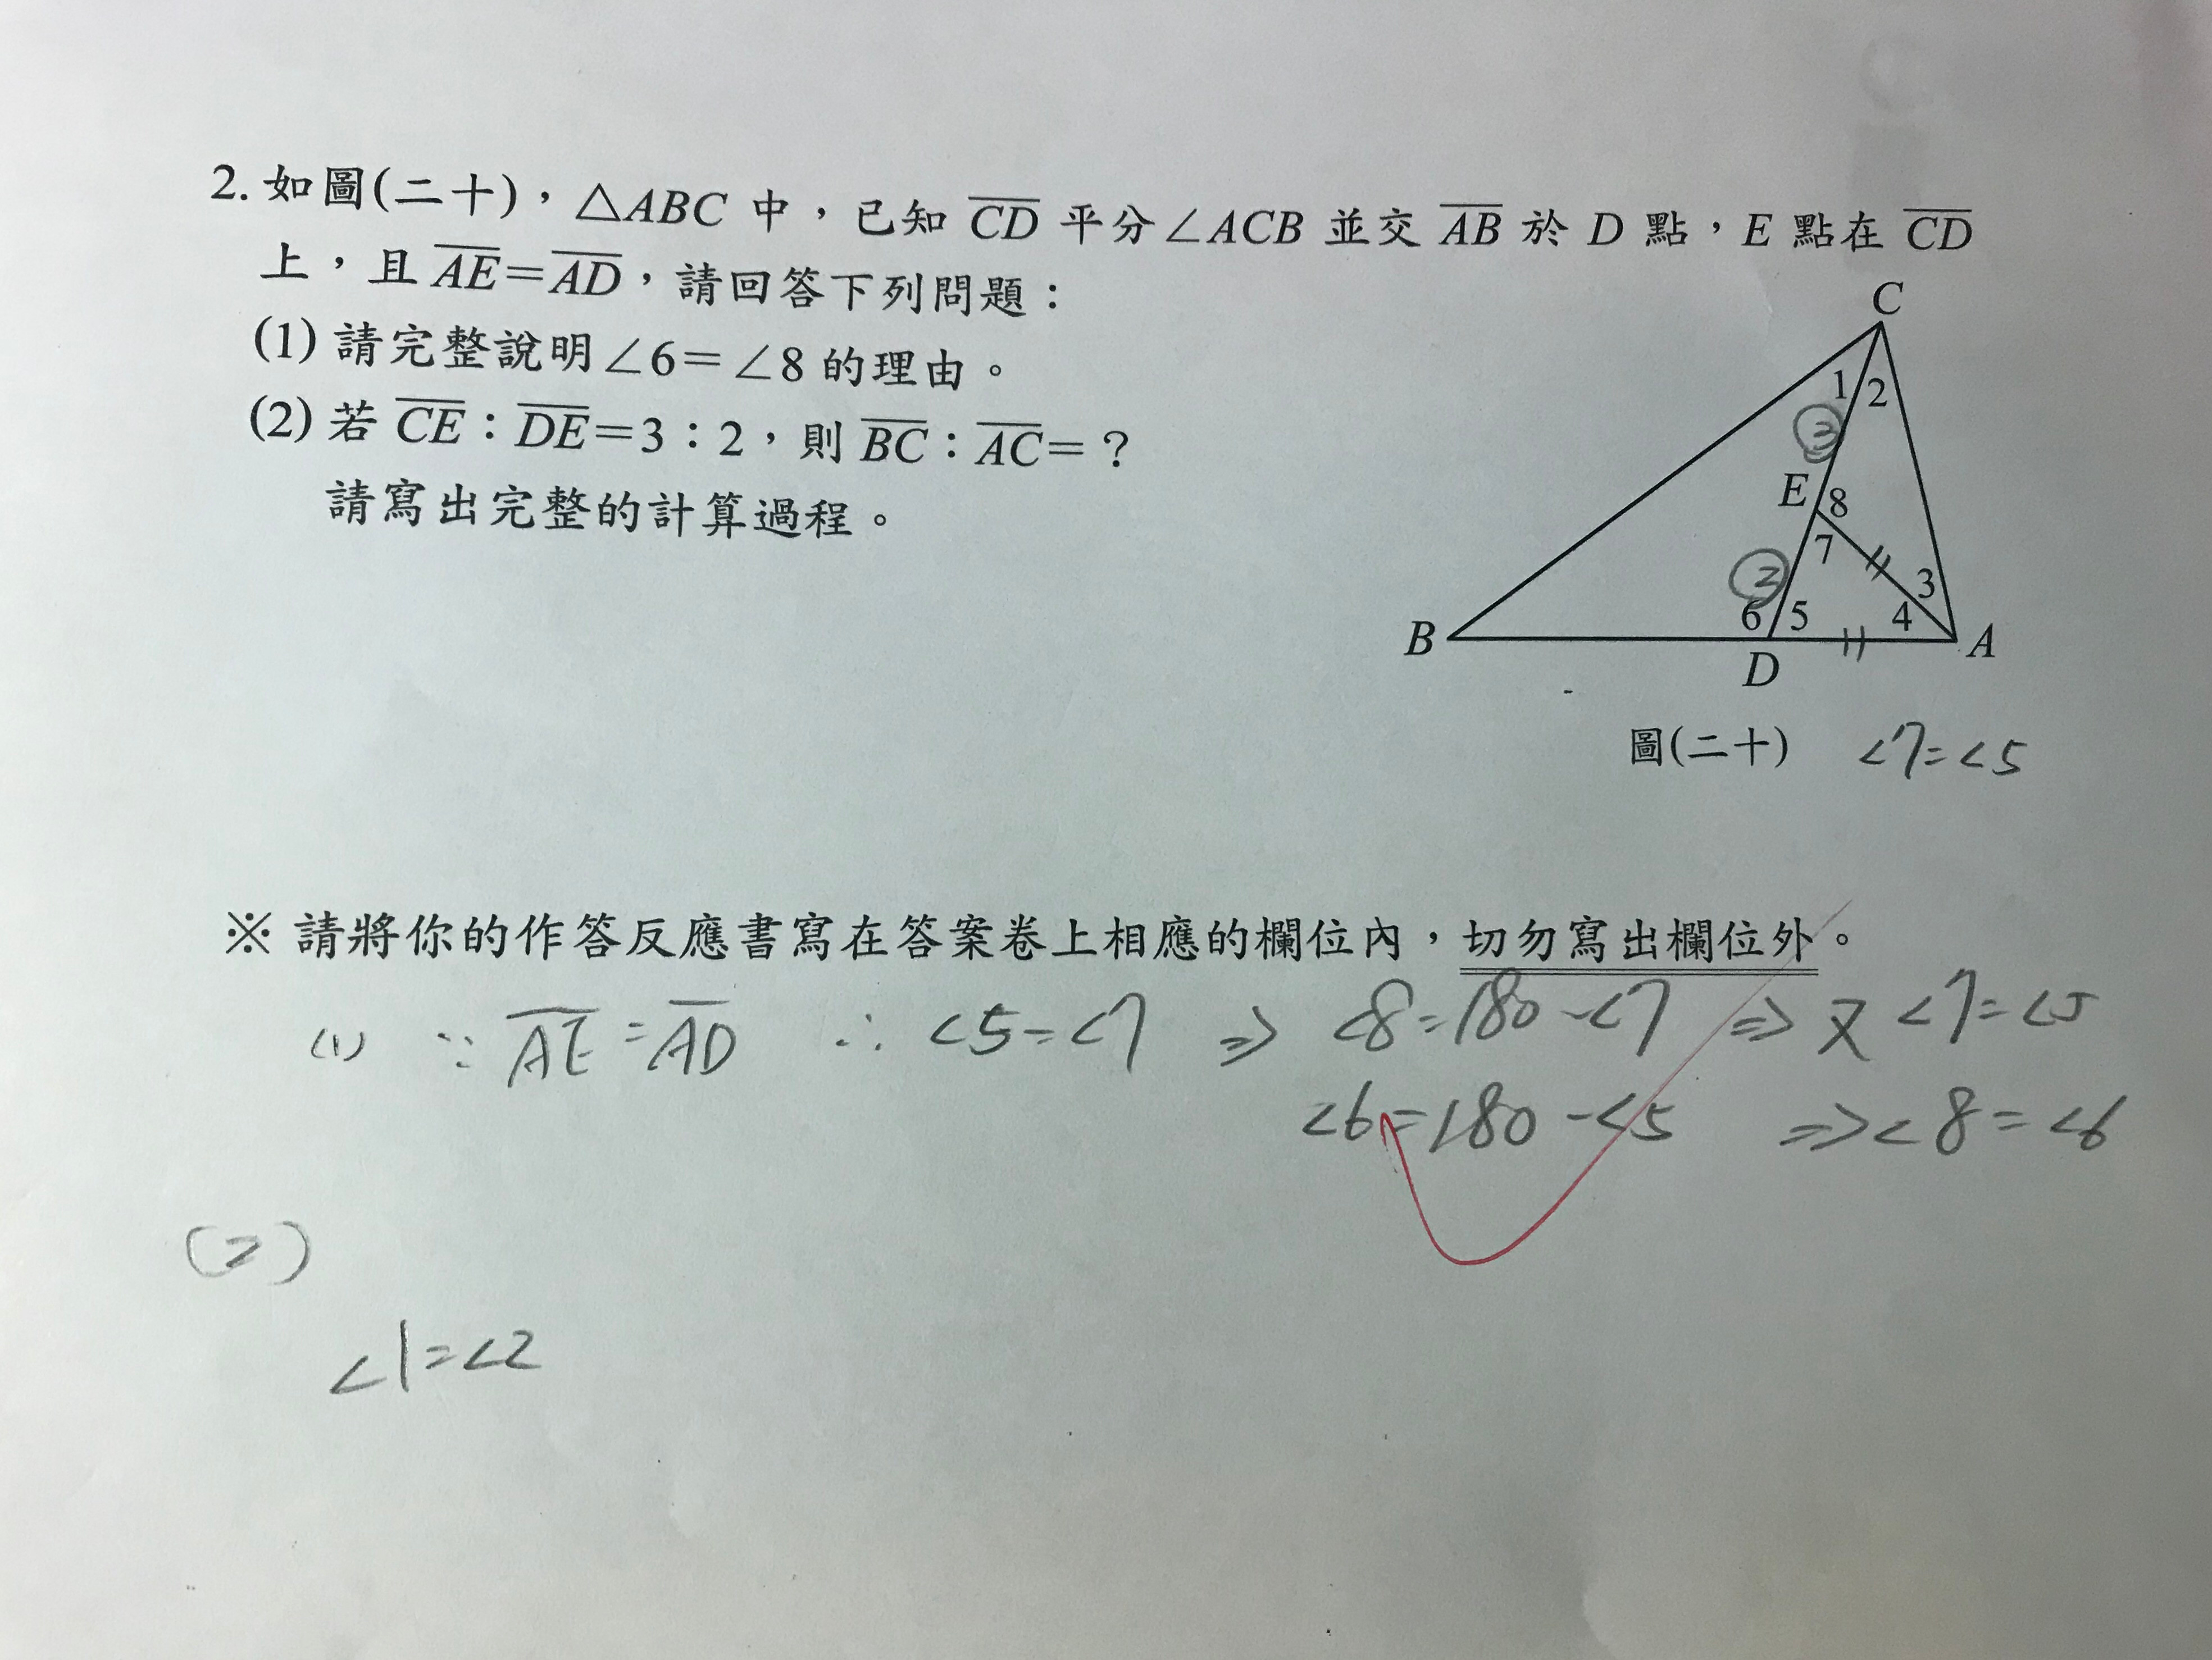 2. 如圖(二十)，△ABC 中，已知 CD 平分∠ACB 並交 AB 於 D 點，E 點在 CD
上，且 AE=AD，請回答下列問題：
(1) 請完整說明∠6=∠8 的理由。
(2) 若 CE：DE=3：2，則 BC：AC=？
請寫出完整的計算過程。
C
1 2
③
E 8
7
② 3
6 5 4
B A
D
圖(二十) <7=<5
※ 請將你的作答反應書寫在答案卷上相應的欄位內，切勿寫出欄位外。
(1) ∵ AE=AD ∴ <5=<7 ⇒ <8=180-<7 ⇒ 又 <7=<5
<6=180-<5 ⇒ <8=<6
(2)
<1=<2